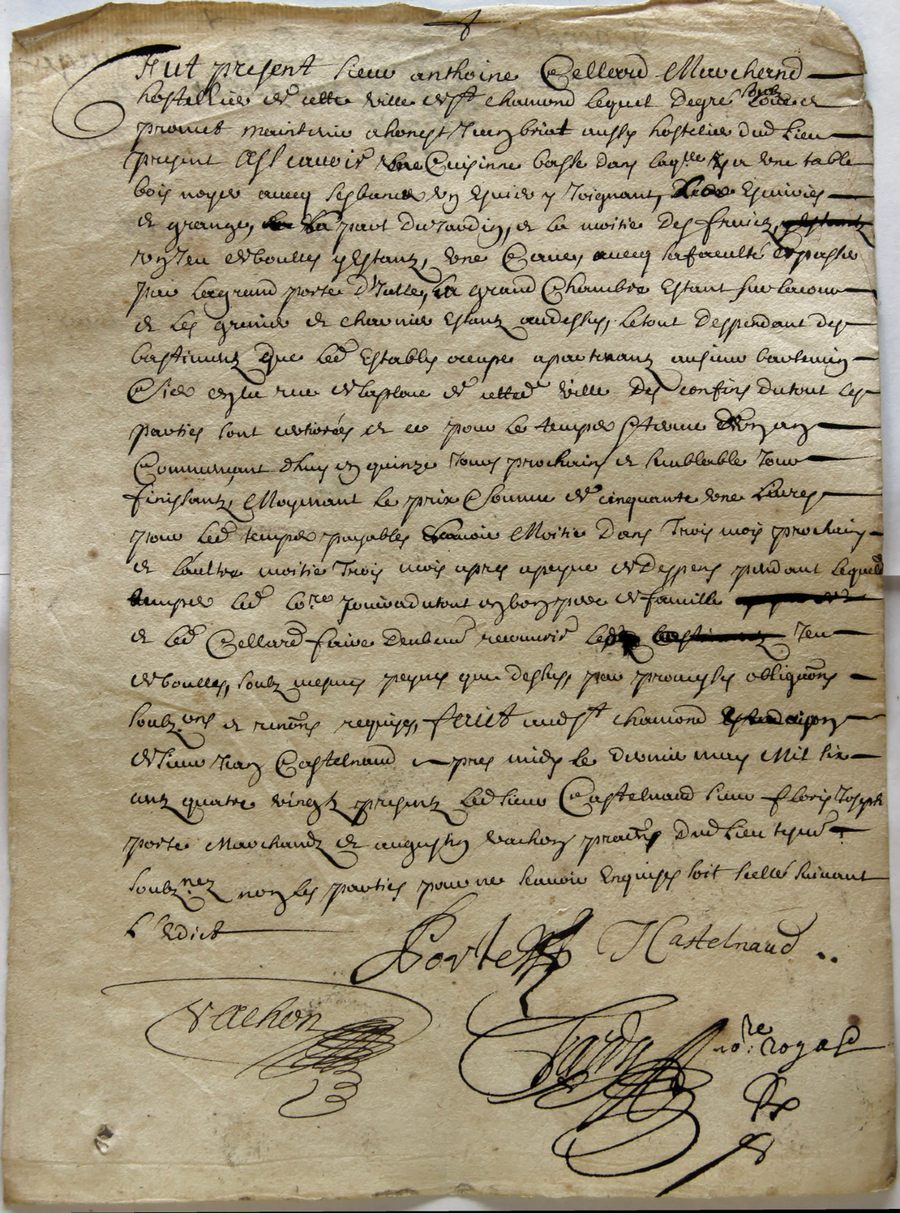 Fut present sieur anthoine Cellard Marchand
hostellier de cette ville de st chamond lequel de gré loue et
promet maintenir a honest Jean briat aussy hostelier dud lieu
present Asscauoir une Cuisinne basse dans laqlle y a une table
bois noyer aueq ses bancs un Esuier y Joignant, Escuries
et grange, la part du Jardin, et la moitié des fruicts,
un Jeu de boulles y Estant, une Caue, aueq la faculté de passer
par la grand porte d'Icelle, la grand Chambre Estant sur la cour
et les grenier et charnier Estant au dessus, le tout deppendant des
bastiments que led Establés ocuppe apartenant au sieur
size en la rue de la place de cetted ville des confins du tout les
parties sont et ce pour le temps & terme d'un an
Commencant d'huy en quinze Jours prochain et semblable Jour
finissant, Moyenant le prix & somme de cinquante une liures
pour led temps payables scauoir Moitié dans Trois mois prochain
et l'aultre moitié Trois mois apres a peyne de despens pendant lequel
temps led jouira du tout en bon pere de famille
et led Cellard faire deubment recouurir Jeu
de boulles, soubz mesmes peynes que dessus, par promesses obligaons
soubz.ons et renons requises, faict aud st chamond
de sieur Jean Castelnaud apres midy le dernier may Mil six
cent quatre vingt presents led sieur Castelnaud sieur floris Joseph
porte Marchands et augustin vachon praticien dud lieu
soubz.nez non les parties pour ne scauoir Enquises soit scellé suiuant
L'Edict
Porte JCastelnaud
vachon
nore Royal